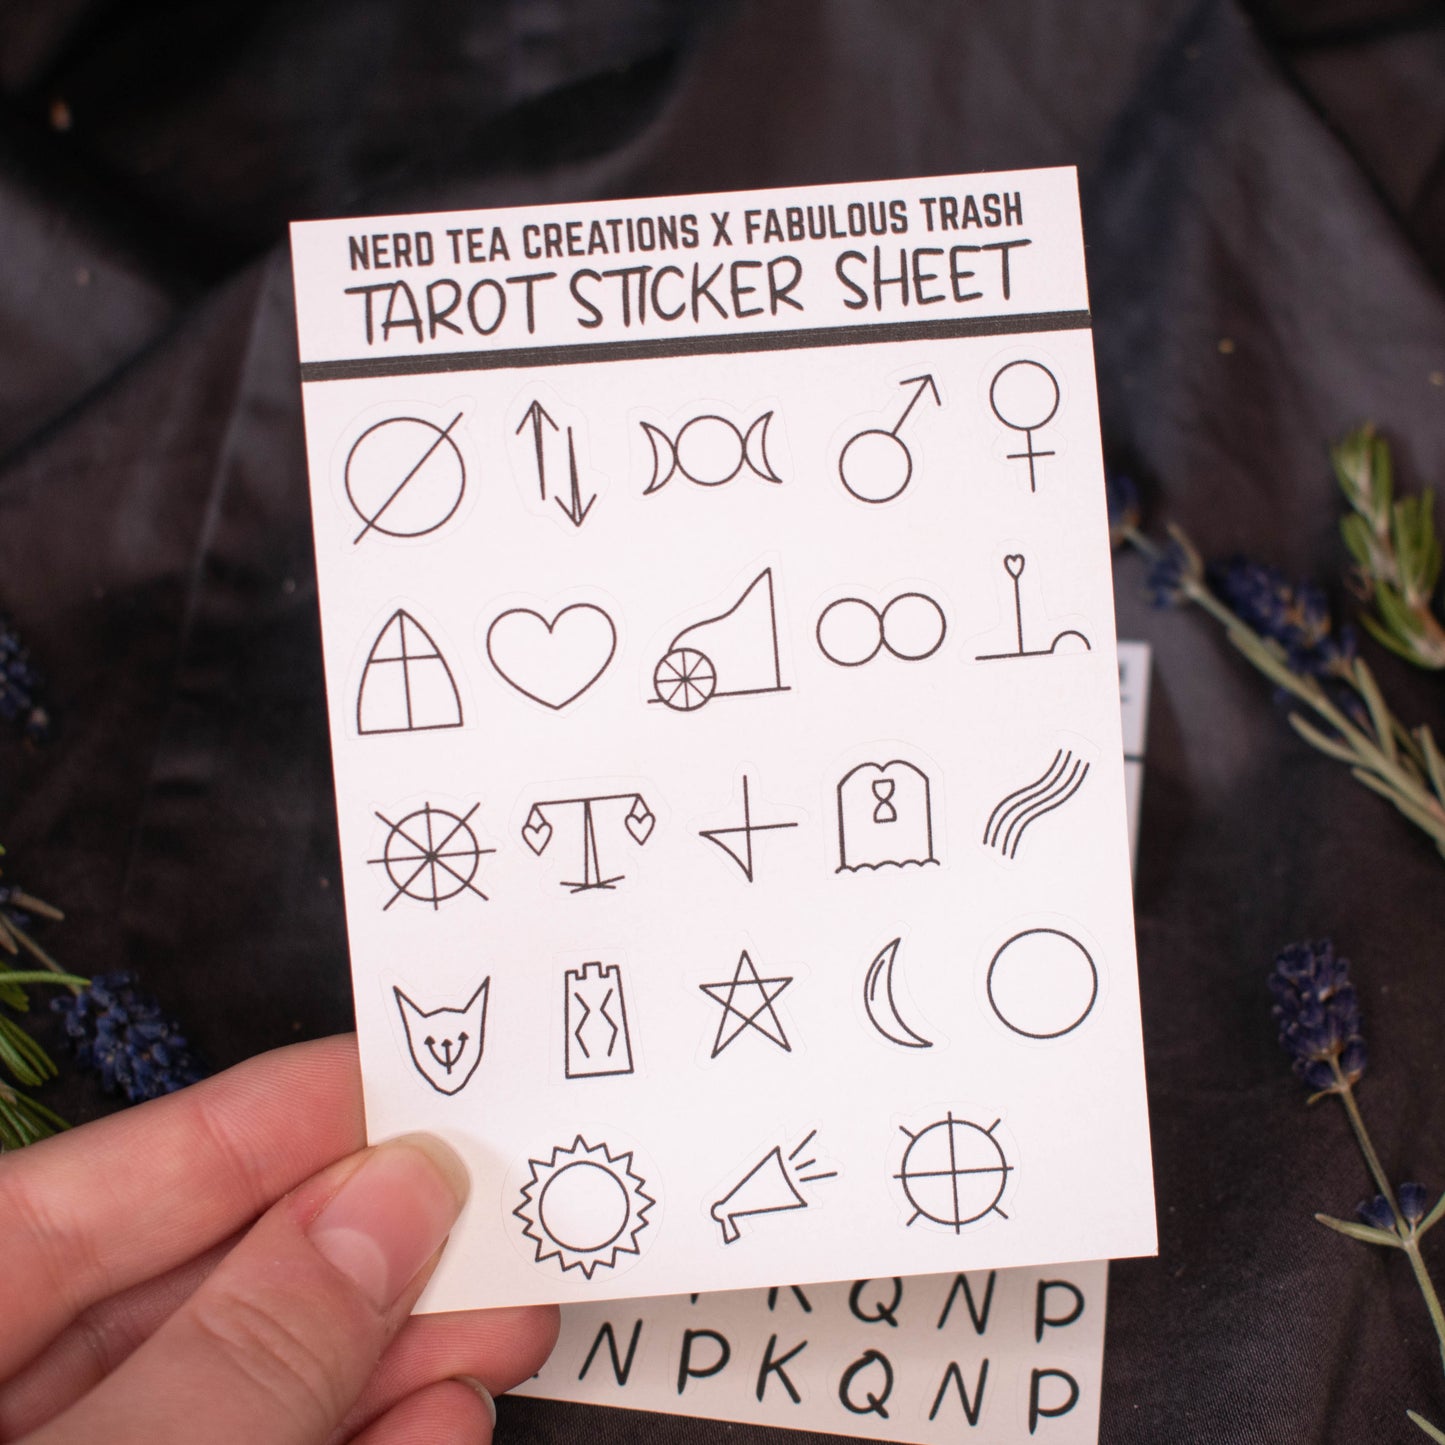 NERD TEA CREATIONS X FABULOUS TRASH
TAROT STICKER SHEET
K Q N P
N P K Q N P